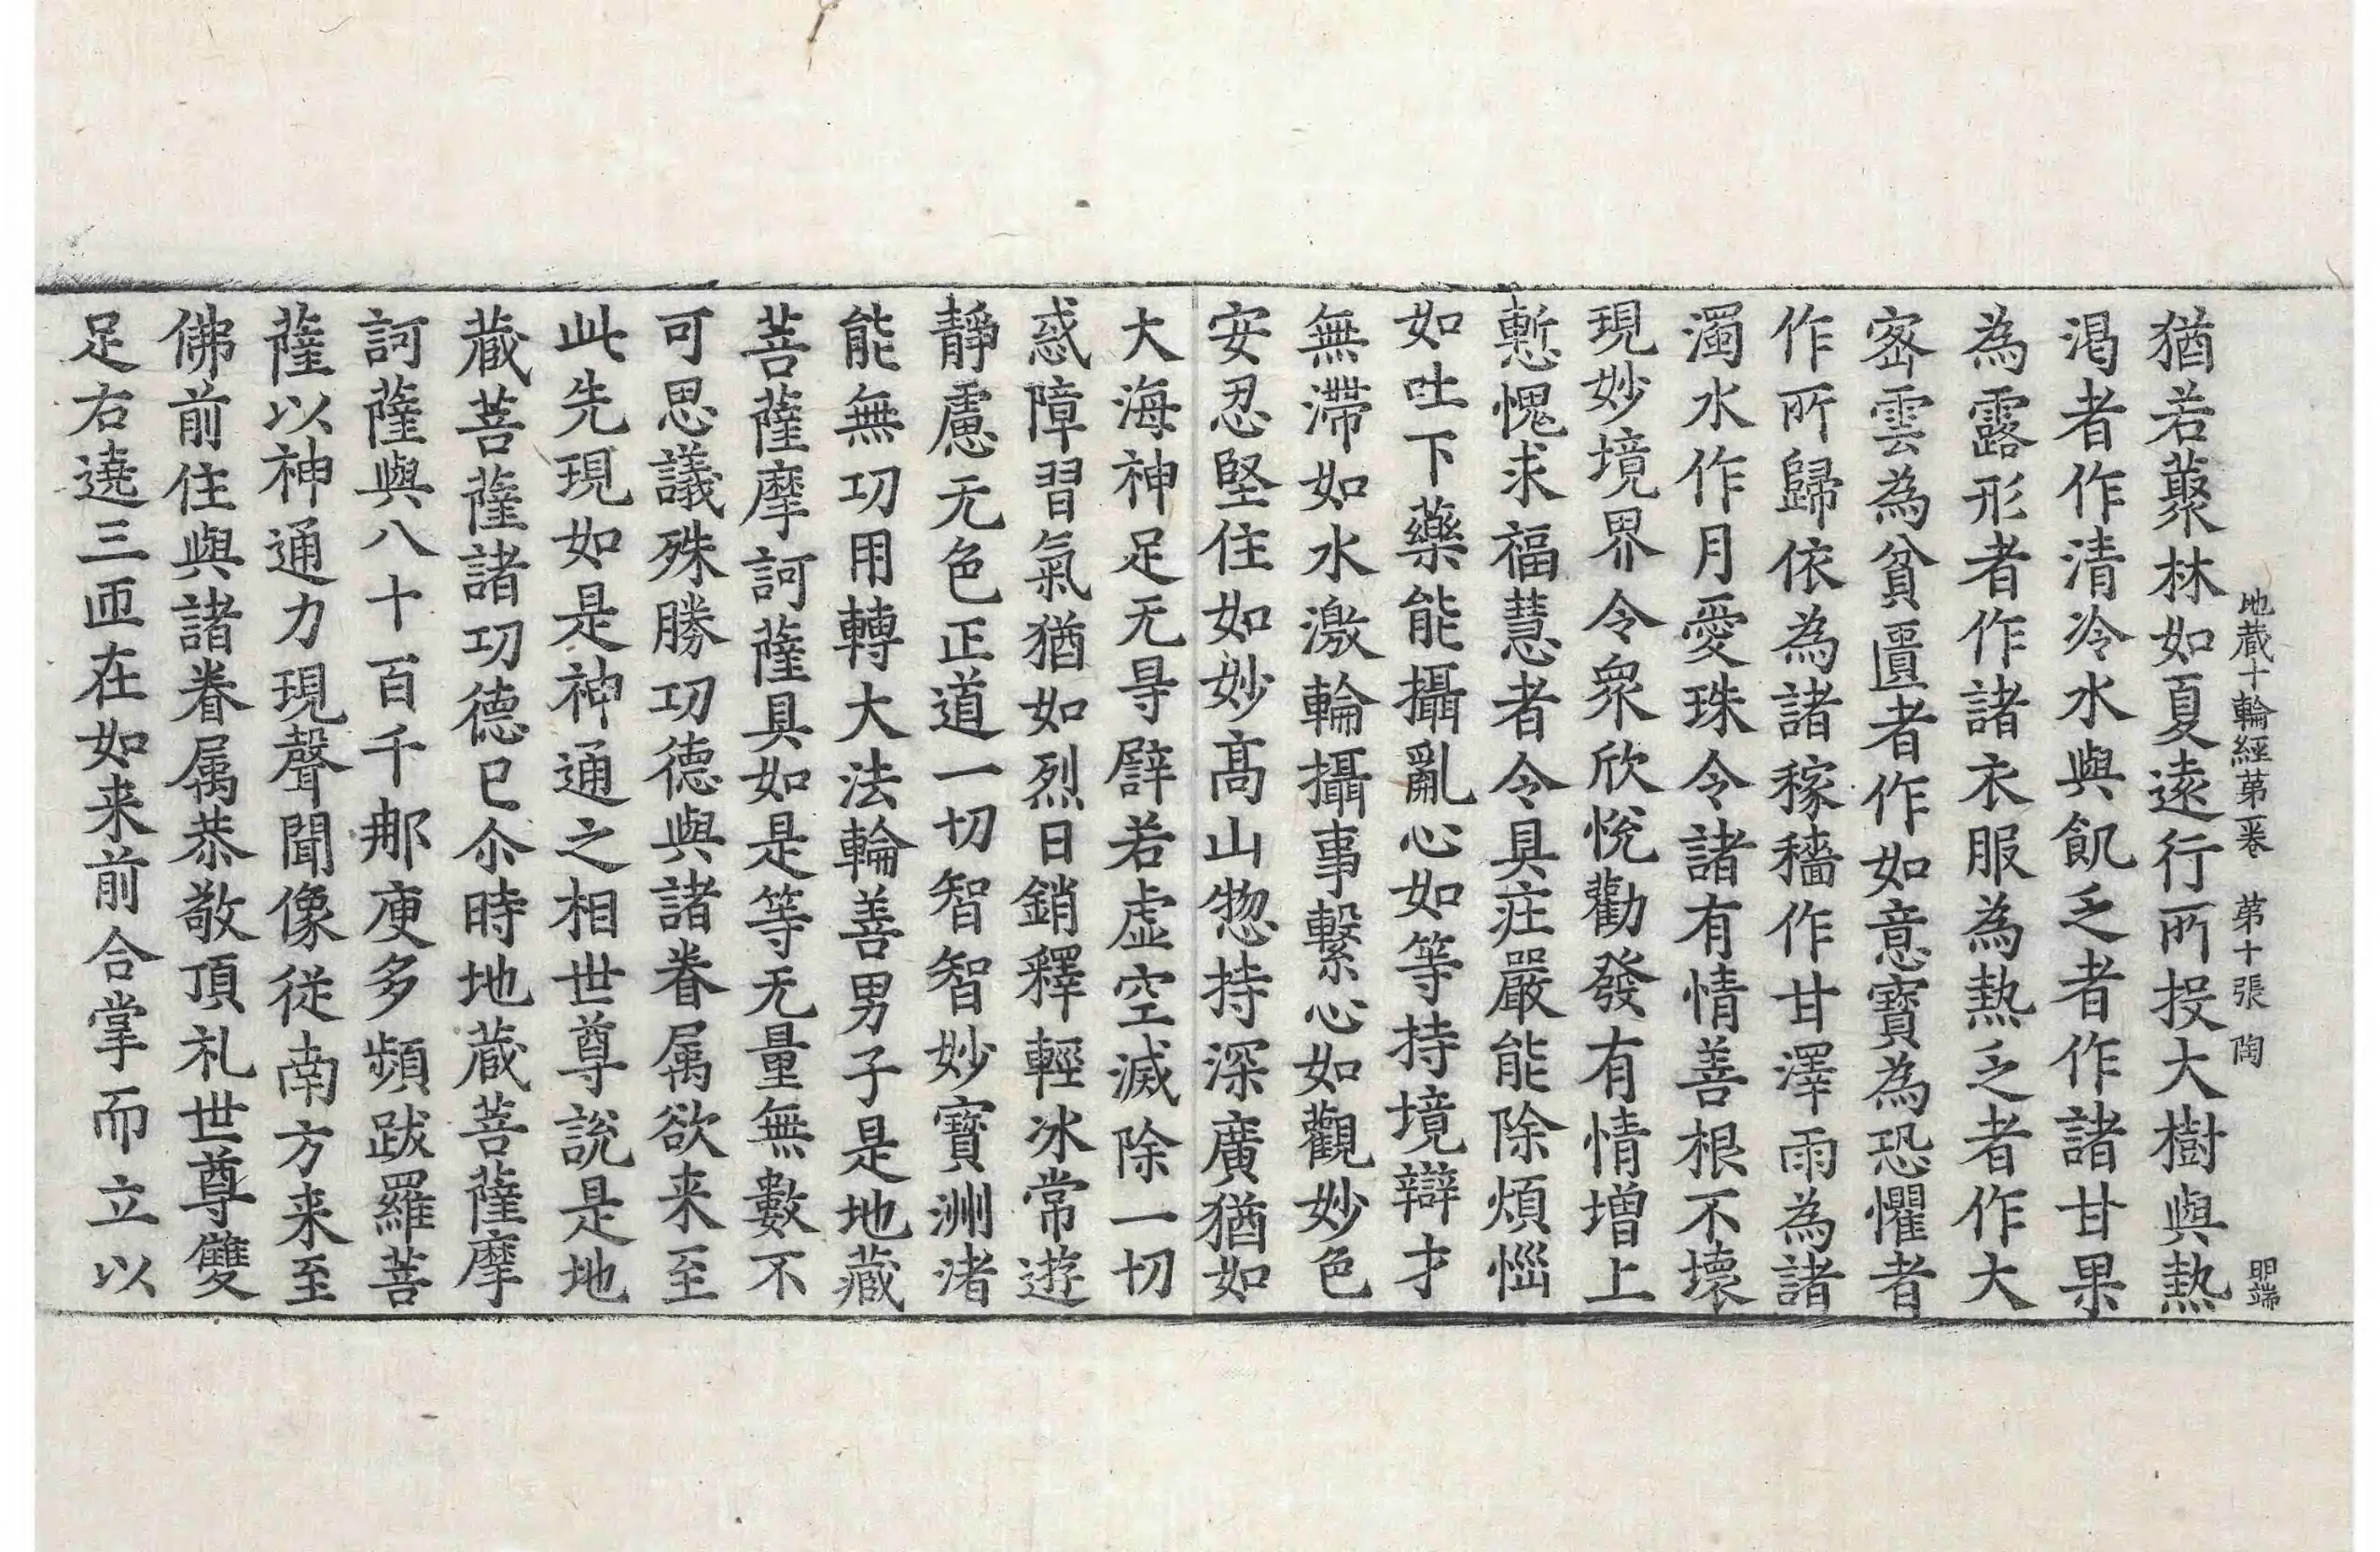 地藏十輪經第一卷　第十張　陶　明端
猶若藂林如夏遠行所投大樹與熱
渴者作清冷水與飢乏者作諸甘果
為露形者作諸衣服為熱乏者作大
密雲為貧匱者作如意寶為恐懼者
作所歸依為諸稼穡作甘澤雨為諸
濁水作月愛珠令諸有情善根不壞
現妙境界令衆欣悅勸發有情增上
慙愧求福慧者令具莊嚴能除煩惱
如吐下藥能攝亂心如等持境辯才
無滯如水激輪攝事繫心如觀妙色
安忍堅住如妙高山惣持深廣猶如
大海神足无㝵譬若虛空滅除一切
惑障習氣猶如烈日銷釋輕冰常遊
靜慮无色正道一切智智妙寶洲渚
能無功用轉大法輪善男子是地藏
菩薩摩訶薩具如是等无量無數不
可思議殊勝功德與諸眷属欲来至
此先現如是神通之相世尊說是地
藏菩薩諸功德已尒時地藏菩薩摩
訶薩與八十百千那庾多頻跋羅菩
薩以神通力現聲聞像從南方来至
佛前住與諸眷属恭敬頂礼世尊雙
足右遶三匝在如来前合掌而立以